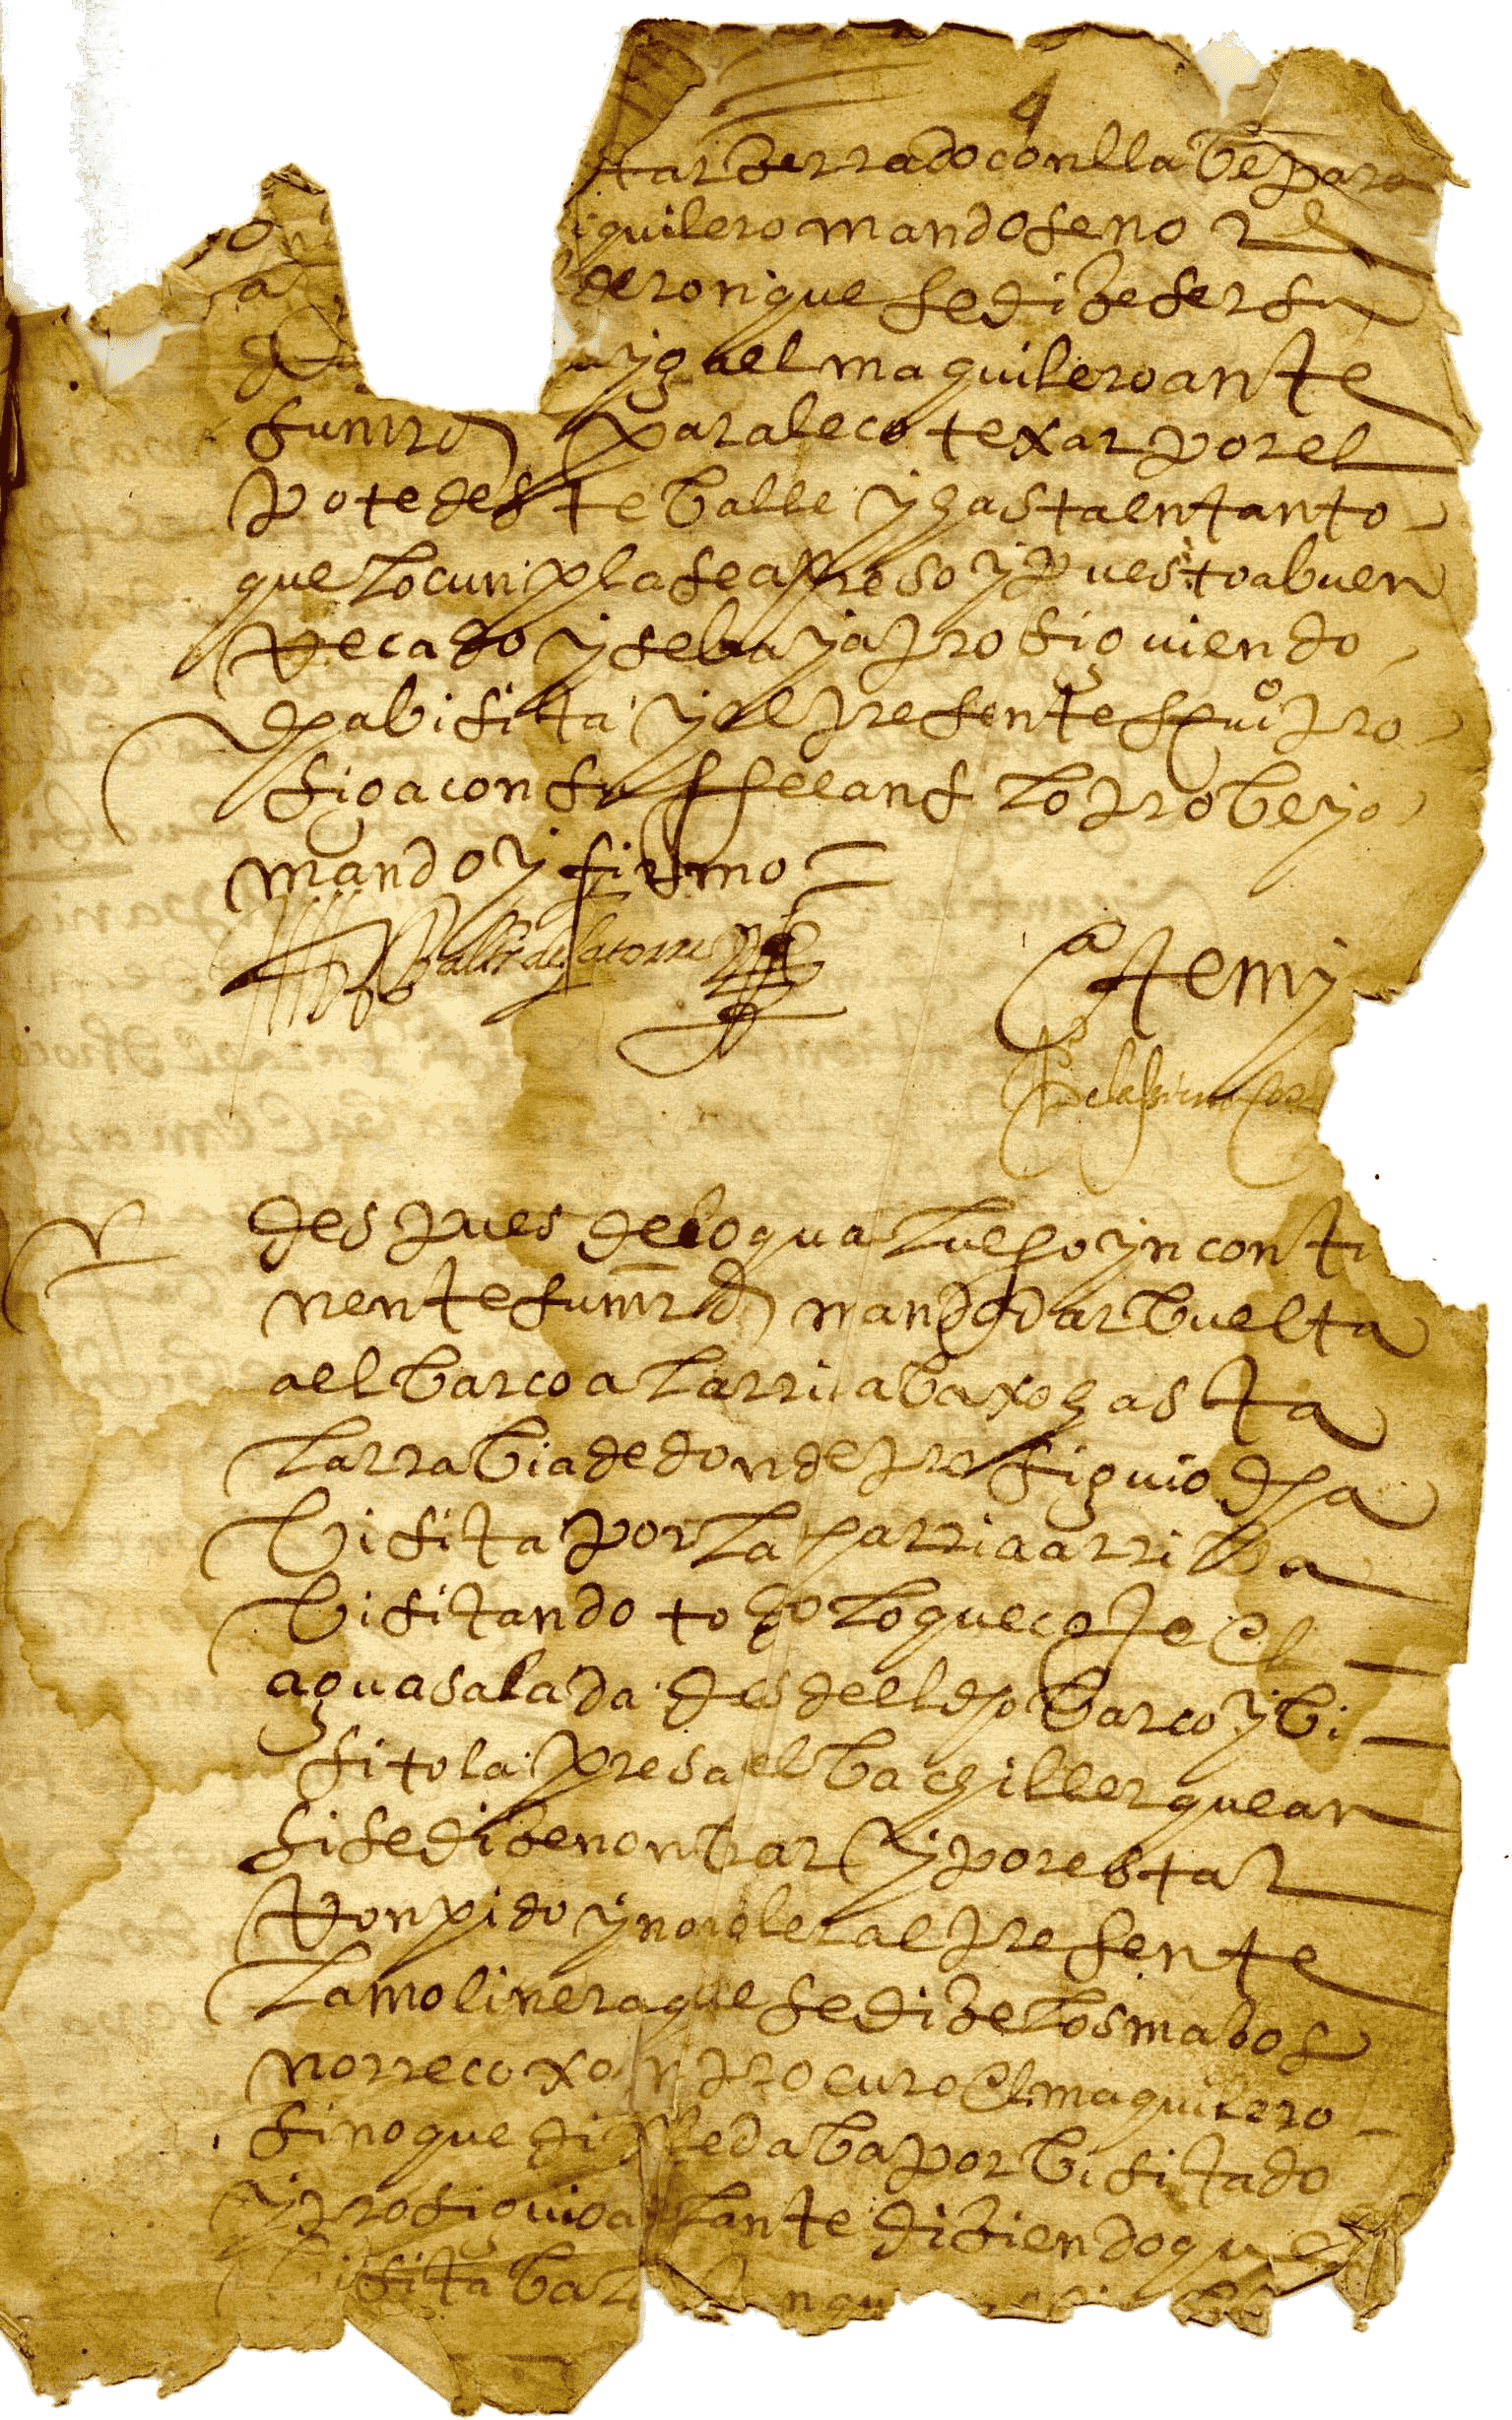 4
tar zerrado con llabe para
quilero mando se no
deron que se dize ser su
el maquilero ante
su mrd para lecotexar por el
pote deste balle y hasta entanto
que lo cunpla sea preso y puesto a buen
recado y se baya prosiguiendo
dha bisita y el presente scriuº pro
siga con su lo probeyo
mando y firmo =
de la torre
Ante my
despues de lo qual luego yn conti
nente su mrd mando dar buelta
a el barco a la rria baxo hasta
la rrabia de donde prosiguio dha
bisita por la parria arriba
bisitando todo lo que coje el
agua salada desde el dho barco y bi
sito la presa el bachiller que an
si se dize nonbrar y por estar
ronpido y no moler al presente
la molinera que se dize los malos
no rrecoxo ni procuro el maquilero
sino que dixo le daba por bisitado
y prosiguio adelante diziendo que
bisitaba